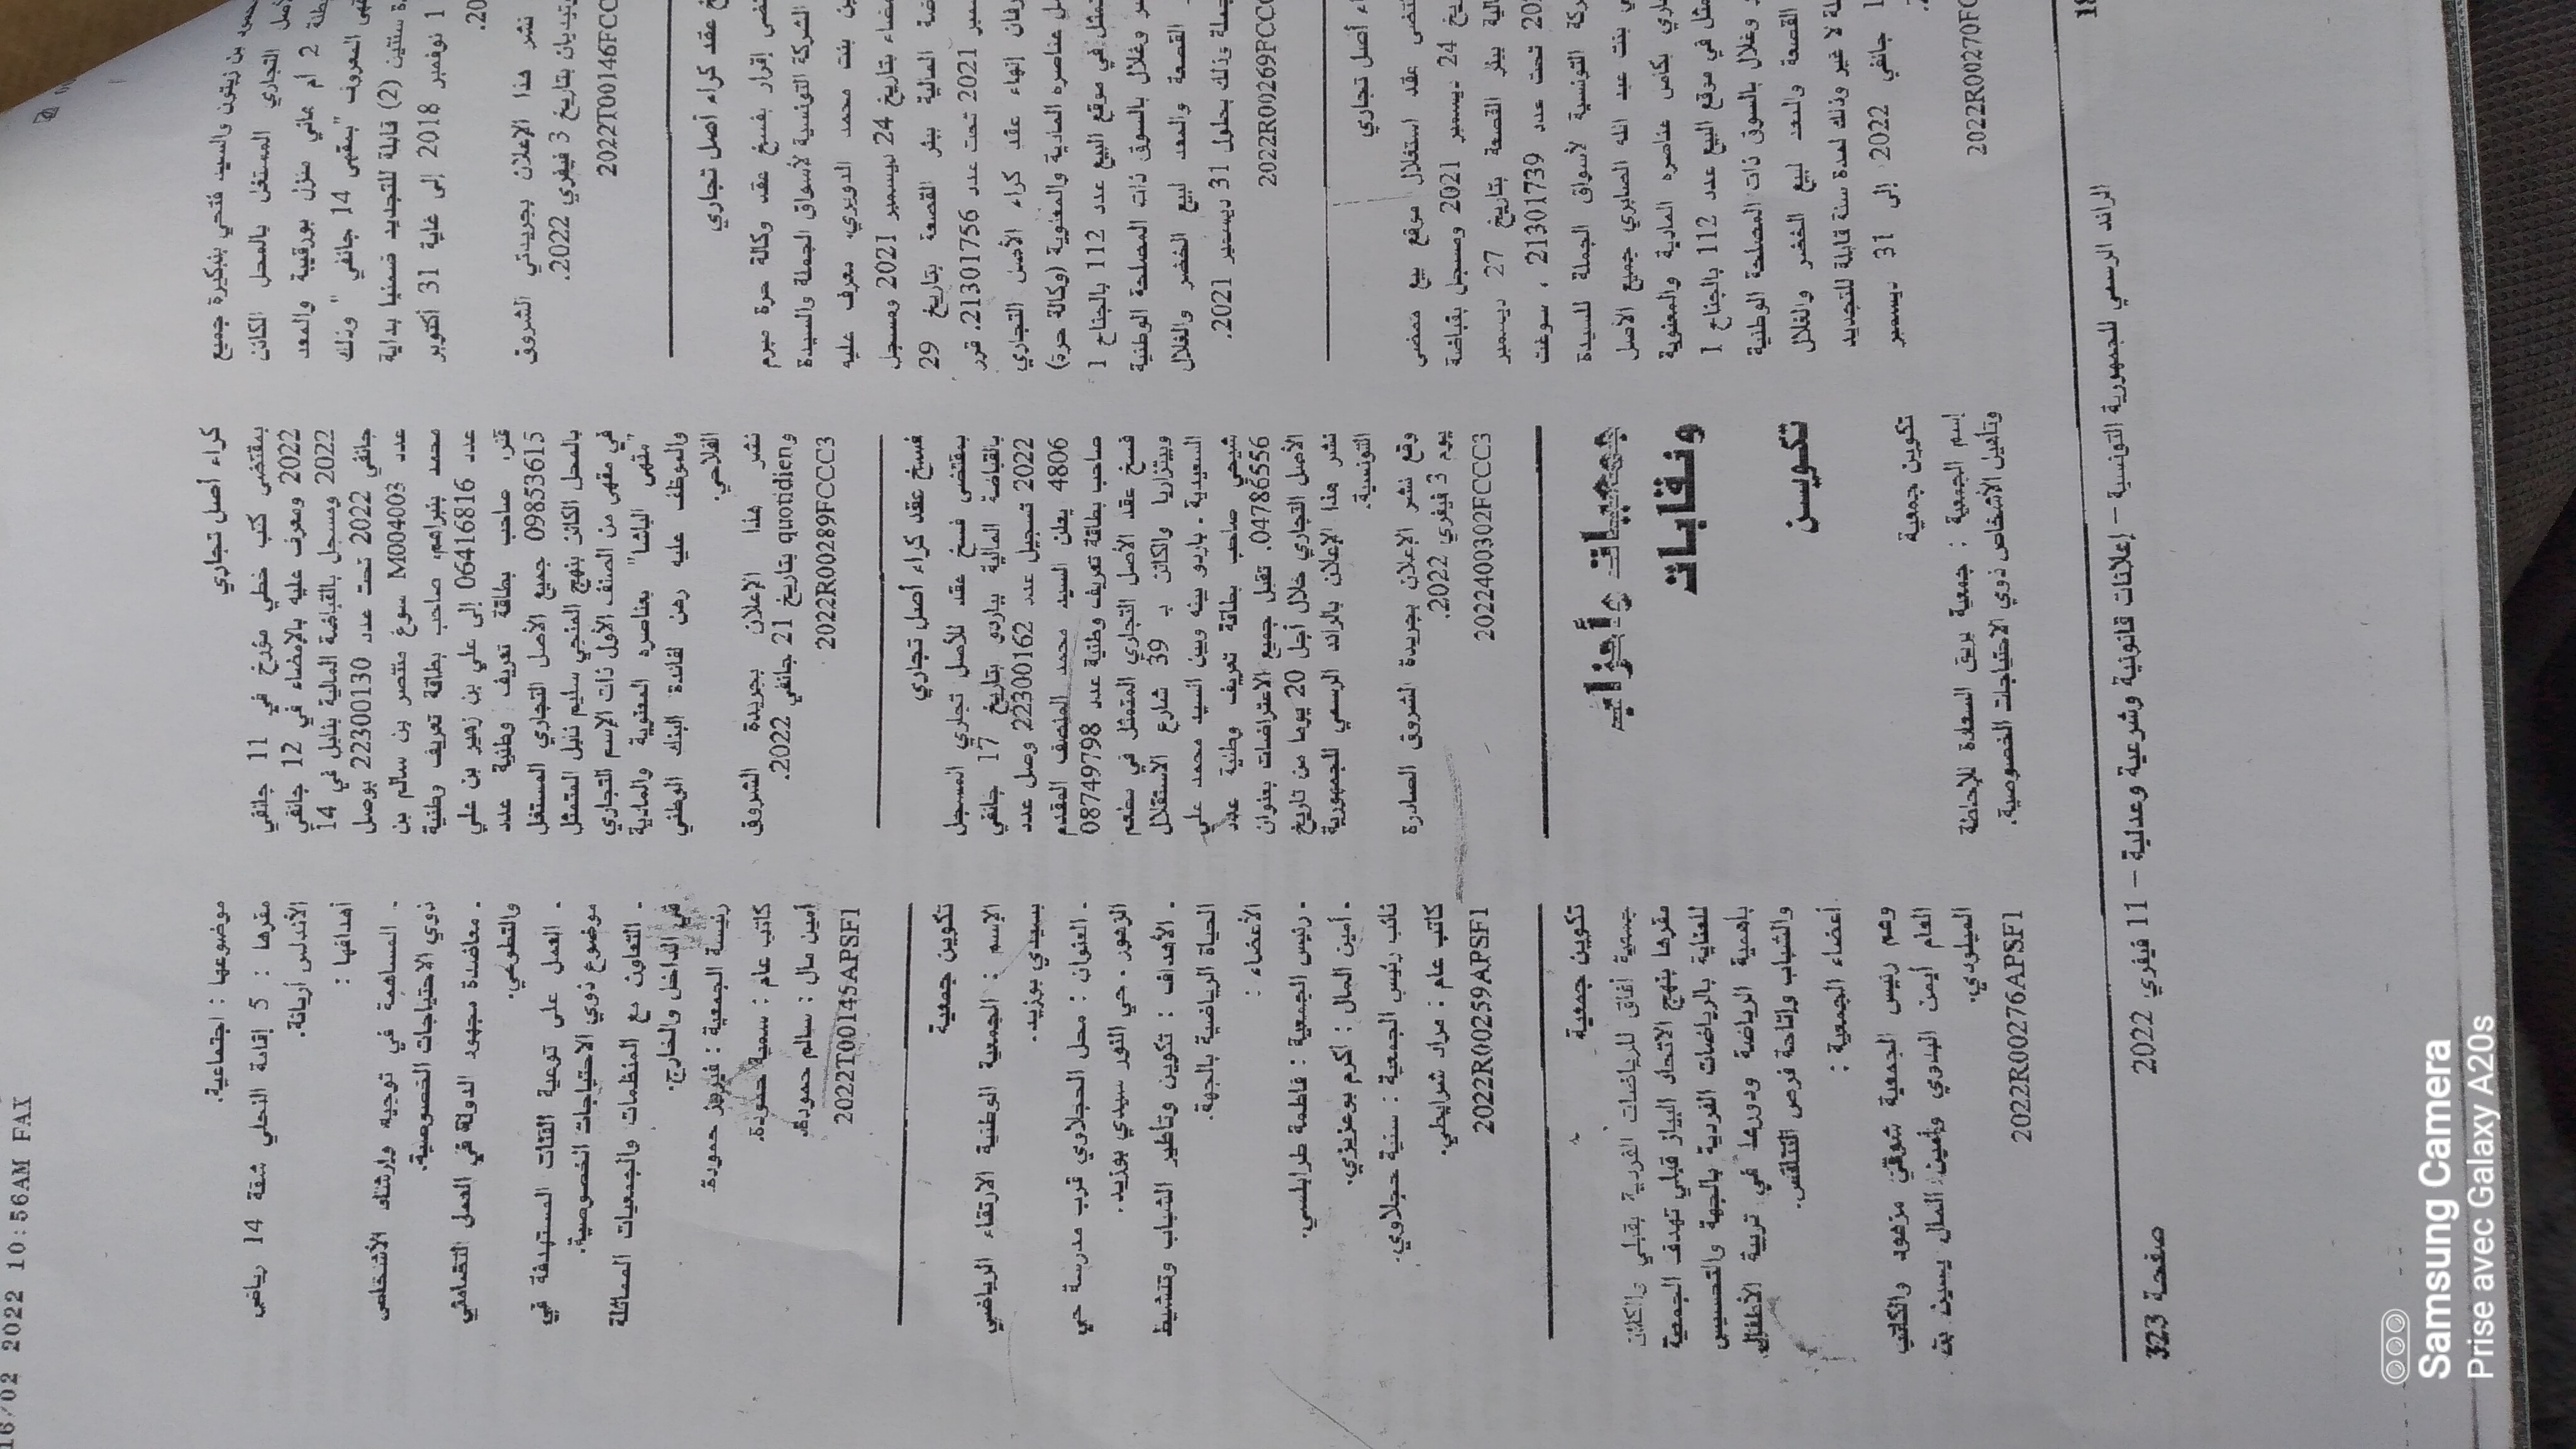 16/02 2022 10:56AM FAX
بن زيتون والسيد فتحي بنبكيرة جميع
الأصل التجاري المستغل بالمحل الكائن
2 أم هاني منزل بورقيبة والمعد
المعروف "بمقهى 14 جانفي" وذلك
سنتين (2) قابلة للتجديد ضمنيا بداية
1 نوفمبر 2018 إلى غاية 31 أكتوبر
نشر هذا الإعلان بجريدتي الشروق
بتاريخ 3 فيفري 2022.
2022T00146FCC
عقد كراء أصل تجاري
إقرار بفسخ عقد وكالة حرة مبرم
الشركة التونسية لأسواق الجملة والسيدة
بنت محمد الدويري، معرف عليه
بتاريخ 24 ديسمبر 2021 ومسجل
المالية ببئر القصعة بتاريخ 29
2021 تحت عدد 21301756، قرر
إنهاء عقد كراء الأصل التجاري
عناصره المادية والمعنوية (وكالة حرة)
في موقع البيع عدد 112 بالجناح 1
وغلال بالسوق ذات المصلحة الوطنية
القصعة والمعد لبيع الخضر والغلال
وذلك بحلول 31 ديسمبر 2021.
2022R00269FCCC
أصل تجاري
عقد استغلال موقع بيع ممضى
24 ديسمبر 2021 ومسجل بقباضة
المالية ببئر القصعة بتاريخ 27 ديسمبر
تحت عدد 21301739 ، سوغت
التونسية لأسواق الجملة للسيدة
بنت عبد الله الصابري جميع الأصل
بكامل عناصره المادية والمعنوية
في موقع البيع عدد 112 بالجناح 1
وغلال بالسوق ذات المصلحة الوطنية
القصعة والمعد لبيع الخضر والغلال
لا غير وذلك لمدة سنة قابلة للتجديد
جانفي 2022 إلى 31 ديسمبر
2022R00270FC
كراء أصل تجاري
بمقتضى كتب خطي مؤرخ في 11 جانفي
2022 ومعرف عليه بالإمضاء في 12 جانفي
2022 ومسجل بالقباضة المالية بنابل في 14
جانفي 2022 تحت عدد 22300130 بوصل
عدد M004003 سوغ منتصر بن سالم بن
محمد بنبراهم، صاحب بطاقة تعريف وطنية
عدد 06416816 إلى علي بن زهير بن علي
قنر، صاحب بطاقة تعريف وطنية عدد
09853615 جميع الأصل التجاري المستغل
بالمحل الكائن بنهج المنجي سليم نابل المتمثل
في مقهى من الصنف الأول ذات الإسم التجاري
"مقهى الباشا" بعناصره المعنوية والمادية
والموظف عليه رهن لفائدة البنك الوطني
الفلاحي.
نشر هذا الإعلان بجريدة الشروق
وquotidien بتاريخ 21 جانفي 2022.
2022R00289FCCC3
فسخ عقد كراء أصل تجاري
بمقتضى فسخ عقد للأصل تجاري المسجل
بالقباضة المالية بباردو بتاريخ 17 جانفي
2022 تسجيل عدد 22300162 وصل عدد
4806 يعلن السيد محمد المنصف المقدم
صاحب بطاقة تعريف وطنية عدد 08749798
فسخ عقد الأصل التجاري المتمثل في مطعم
وبيتزاريا والكائن بـ 39 شارع الاستقلال
السعيدية ـ باردو بينه وبين السيد محمد علي
شيحي صاحب بطاقة تعريف وطنية عدد
04786556. تقبل جميع الاعتراضات بعنوان
الأصل التجاري خلال أجل 20 يوما من تاريخ
نشر هذا الإعلان بالرائد الرسمي للجمهورية
التونسية.
وقع نشر الإعلان بجريدة الشروق الصادرة
يوم 3 فيفري 2022.
2022400302FCCC3
جمعيات وأحزاب
ونقابات
تكويـن
تكوين جمعية
إسم الجمعية : جمعية بريق السعادة للإحاطة
وتأهيل الأشخاص ذوي الاحتياجات الخصوصية.
موضوعها : اجتماعية.
مقرها : 5 إقامة النحلي شقة 14 رياض
الأندلس أريانة.
أهدافها :
ـ المساهمة في توجيه وإرشاد الأشخاص
ذوي الاحتياجات الخصوصية.
ـ معاضدة مجهود الدولة في العمل التضامني
والتطوعي.
ـ العمل على توعية الفئات المستهدفة في
موضوع ذوي الاحتياجات الخصوصية.
ـ التعاون مع المنظمات والجمعيات المماثلة
في الداخل والخارج.
رئيسة الجمعية : فيروز حمودة.
كاتب عام : سمية حمودة.
أمين مال : سالم حمودة.
2022T00145APSF1
تكوين جمعية
الإسم : الجمعية الوطنية الارتقاء الرياضي
بسيدي بوزيد.
ـ العنوان : محل الحجلاوي قرب مدرسة حي
الزهور ـ حي النور سيدي بوزيد.
ـ الأهداف : تكوين وتأطير الشباب وتنشيط
الحياة الرياضية بالجهة.
الأعضاء :
ـ رئيس الجمعية : فاطمة طرابلسي.
ـ أمين المال : أكرم بوعزيزي.
نائب رئيس الجمعية : سنية حجلاوي.
كاتب عام : مراد شرايطي.
2022R00259APSF1
تكوين جمعية
جمعية آفاق للرياضات الفردية بقبلي والكائن
مقرها بنهج الاتحاد البياز قبلي تهدف الجمعية
للعناية بالرياضات الفردية بالجهة والتحسيس
بأهمية الرياضة ودورها في تربية الأطفال
والشباب وإتاحة فرص التنافس.
أعضاء الجمعية :
وهم رئيس الجمعية شوقي مزهود والكاتب
العام أيمن البدوي وأمين المال يسين بن
الميلودي.
2022R00276APSF1
صفحة 323
الرائد الرسمي للجمهورية التونسية – إعلانات قانونية وشرعية وعدلية – 11 فيفري 2022
18
Samsung Camera
Prise avec Galaxy A20s